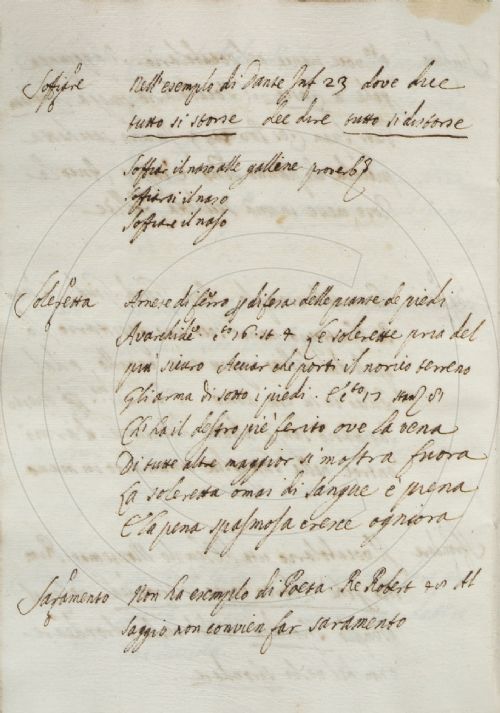 Soffiare Nell'esemplo di Dante Inf 23 dove dice
tutto si storse dee dire tutto si distorse
Soffiar il naso alle galline proverb
soffiarsi il naso
Soffiare il naso
Soleretta Arnese di ferro p difesa delle piante de piedi
Avarchide. 16. st 4 Le solerette pria del
più sicuro Acciar che porti il norico terreno
Gli arma di sotto i piedi. E cto 17 81
Ch'ha il destro piè ferito ove la vena
Di tutte altre maggior si mostra fuora
La soleretta omai di sangue è piena
E la pena spasmosa cresce ogniora
Saramento Non ha esemplo di Poeta. Re Robert Al
saggio non convien far saramento